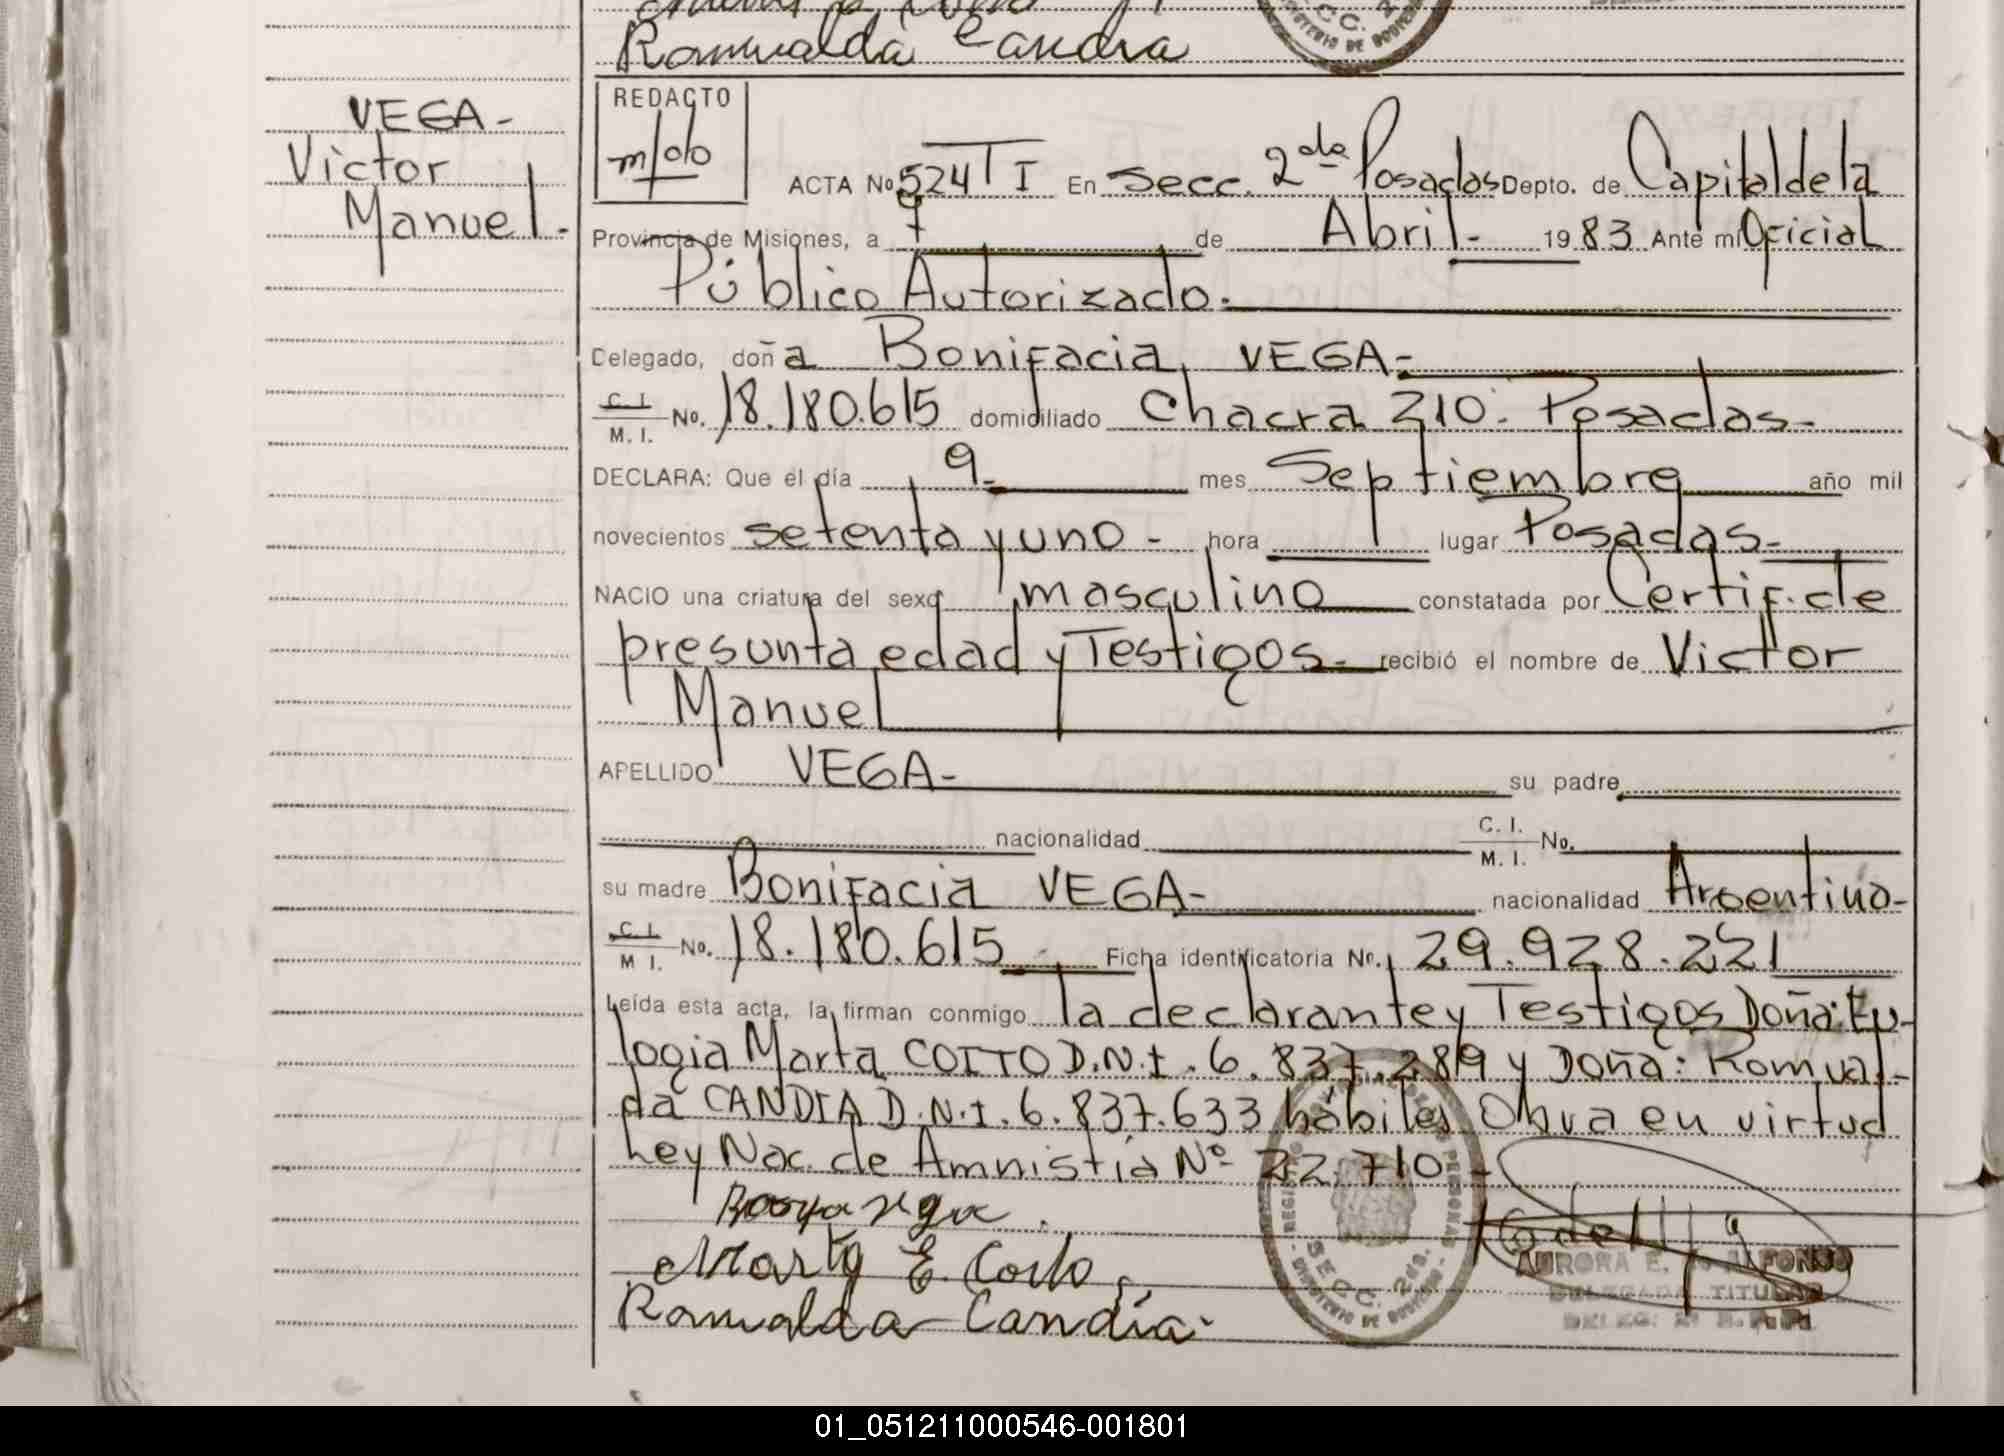 Romualda Candia
VEGA-
Victor
Manuel.-
REDACTO
ACTA No 524 T I En Secc. 2da Posadas Depto. de Capital de la
Provincia de Misiones, a 7 de Abril.- 1983 Ante mi Oficial
Público Autorizado.-
Delegado, doña Bonifacia VEGA-
C. I. M. I. No. 18.180.615 domiciliado Chacra 210. Posadas-
DECLARA: Que el día 9- mes Septiembre año mil
novecientos setenta y uno - hora lugar Posadas-
NACIO una criatura del sexo masculino constatada por Certif. de
presunta edad y Testigos- recibió el nombre de Victor
Manuel
APELLIDO VEGA- su padre
nacionalidad C. I. M. I. No.
su madre Bonifacia VEGA- nacionalidad Argentina-
C. I. M I. No. 18.180.615 Ficha identificatoria No. 29.928.221
Leída esta acta, la firman conmigo la declarante y Testigos Doña: Eu-
logia Marta COITO D.N.I. 6.837.289 y Doña: Romual-
da CANDIA D.N.I. 6.837.633 hábiles Obra en virtud
Ley Nac. de Amnistia Nº 22.710-
Marta E.
Romualda Candia
SECC. 2da.
AURORA E. ALFONSO
DELEGADA TITULAR
01_051211000546-001801